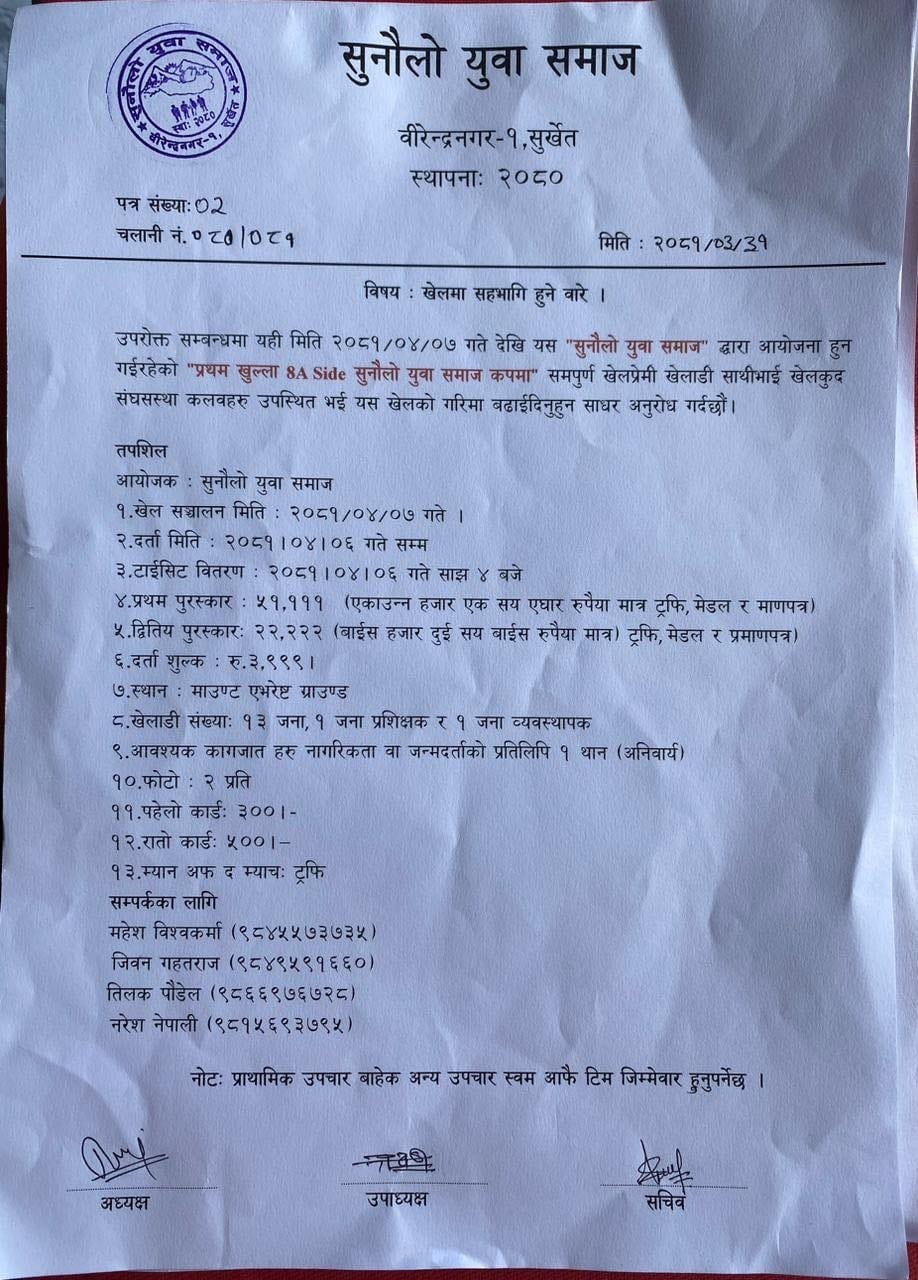 सुनौलो युवा समाज
सुनौलो युवा समाज
स्था: २०८०
वीरेन्द्रनगर-१, सुर्खेत
वीरेन्द्रनगर-१,सुर्खेत
स्थापनाः २०८०
पत्र संख्याः 02
चलानी नं. ०८०/०८१
मिति : २०८१/०३/३१
विषय : खेलमा सहभागि हुने वारे ।
उपरोक्त सम्बन्धमा यही मिति २०८१/०४/०७ गते देखि यस "सुनौलो युवा समाज" द्धारा आयोजना हुन
गईरहेको "प्रथम खुल्ला 8A Side सुनौलो युवा समाज कपमा" समपुर्ण खेलप्रेमी खेलाडी साथीभाई खेलकुद
संघसस्था कलवहरु उपस्थित भई यस खेलको गरिमा बढाईदिनुहुन साधर अनुरोध गर्दछौं।
तपशिल
आयोजक : सुनौलो युवा समाज
१.खेल सञ्चालन मिति : २०८१/०४/०७ गते ।
२.दर्ता मिति : २०८१।०४।०६ गते सम्म
३.टाईसिट वितरण : २०८१।०४।०६ गते साझ ४ बजे
४.प्रथम पुरस्कार : ५१,१११ (एकाउन्न हजार एक सय एघार रुपैया मात्र ट्रफि,मेडल र माणपत्र)
५.द्वितिय पुरस्कारः २२,२२२ (बाईस हजार दुई सय बाईस रुपैया मात्र) ट्रफि,मेडल र प्रमाणपत्र)
६.दर्ता शुल्क : रु.३,९९९।
७.स्थान : माउण्ट एभरेष्ट ग्राउण्ड
८.खेलाडी संख्याः १३ जना,१ जना प्रशिक्षक र १ जना व्यवस्थापक
९.आवश्यक कागजात हरु नागरिकता वा जन्मदर्ताको प्रतिलिपि १ थान (अनिवार्य)
१०.फोटो : २ प्रति
११.पहेलो कार्डः ३००।-
१२.रातो कार्डः ५००।-
१३.म्यान अफ द म्याचः ट्रफि
सम्पर्कका लागि
महेश विश्वकर्मा (९८४५५७३७३५)
जिवन गहतराज (९८४९५९१६६०)
तिलक पौडेल (९८६६९७६७२८)
नरेश नेपाली (९८१५६९३७९५)
नोटः प्राथामिक उपचार बाहेक अन्य उपचार स्वम आफै टिम जिम्मेवार हुनुपर्नेछ ।
अध्यक्ष
उपाध्यक्ष
सचिव